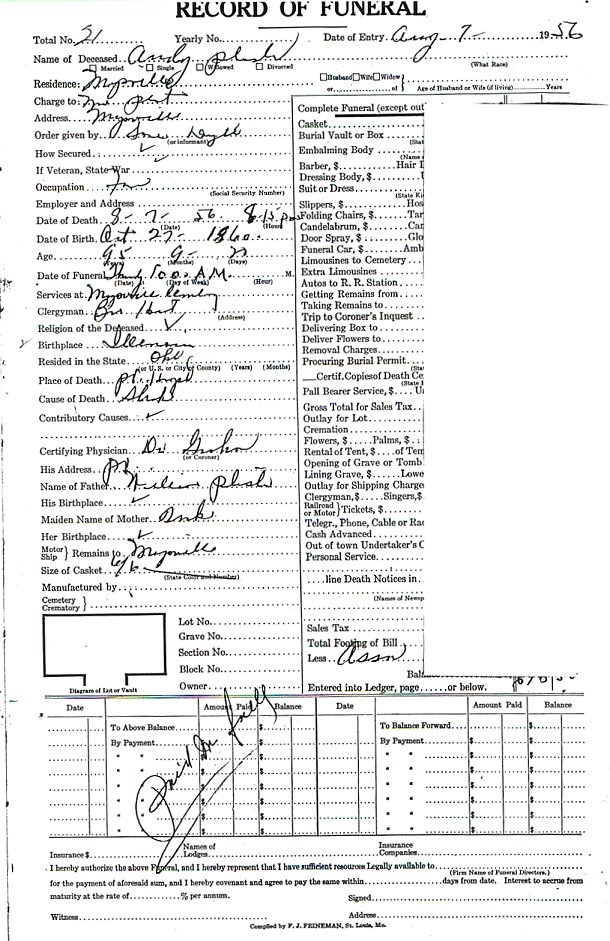 RECORD OF FUNERAL
Total No. 21 Yearly No. Date of Entry Aug 7- 1956
Name of Deceased Andy Plish
Married Single Widowed Divorced (What Race)
Residence: Husband Wife Widow
or of Age of Husband or Wife (if living) Years
Charge to:
Address
Order given by
(or informant)
How Secured ✓
If Veteran, State War
Occupation
(Social Security Number)
Employer and Address
Date of Death 8-7-56 8:15 pm
(Date) (Hour)
Date of Birth Oct 27- 1860
Age 95 9
(Years) (Months) (Days)
Date of Funeral 10:00 A.M. M.
(Date) (Day of Week) (Hour)
Services at
Clergyman
(Address)
Religion of the Deceased ✓
Birthplace
Resided in the State Ohio
(or U. S. or City or County) (Years) (Months)
Place of Death
Cause of Death
Contributory Causes ✓
Certifying Physician Dr
(or Coroner)
His Address
Name of Father William Plish
His Birthplace ✓
Maiden Name of Mother
Her Birthplace ✓
Motor Ship } Remains to
Size of Casket 6/6
(State Color and Number)
Manufactured by
Cemetery Crematory }
Diagram of Lot or Vault
Lot No.
Grave No.
Section No.
Block No.
Owner
Complete Funeral (except out
Casket
Burial Vault or Box
(Stat
Embalming Body
(Name
Barber, $ Hair I
Dressing Body, $
Suit or Dress
(State Ki
Slippers, $ Hos
Folding Chairs, $ Tar
Candelabrum, $ Car
Door Spray, $ Glo
Funeral Car, $ Amb
Limousines to Cemetery
Extra Limousines
Autos to R. R. Station
Getting Remains from
Taking Remains to
Trip to Coroner's Inquest
Delivering Box to
Deliver Flowers to
Removal Charges
Procuring Burial Permit
(Sta
Certif. Copies of Death Ce
(State I
Pall Bearer Service, $ U
Gross Total for Sales Tax
Outlay for Lot
Cremation
Flowers, $ Palms, $
Rental of Tent, $ of Ten
Opening of Grave or Tomb
Lining Grave, $ Lowe
Outlay for Shipping Charge
Clergyman, $ Singers, $
Railroad or Motor } Tickets, $
Telegr., Phone, Cable or Rad
Cash Advanced
Out of town Undertaker's C
Personal Service
line Death Notices in
(Names of Newsp
Sales Tax
Total Footing of Bill
Less Assn
Bal
Entered into Ledger, page or below.
Date Amount Paid Balance Date Amount Paid Balance
To Above Balance $ To Balance Forward $
By Payment $ By Payment $
" " $ " " $
" " $ " " $
" " $ " " $
" " $ " " $
" " $ " " $
" " $ " " $
Paid In full
Insurance $ Names of Lodges Insurance Companies
I hereby authorize the above Funeral, and I hereby represent that I have sufficient resources Legally available to
(Firm Name of Funeral Directors.)
for the payment of aforesaid sum, and I hereby covenant and agree to pay the same within days from date. Interest to accrue from
maturity at the rate of % per annum. Signed
Witness Address
Compiled by F. J. FEINEMAN, St. Louis, Mo.